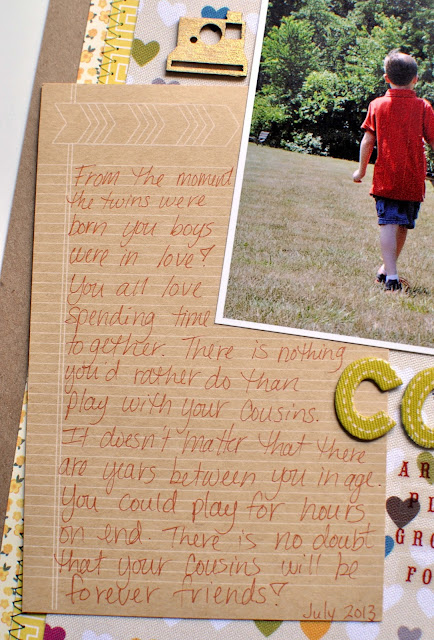 From the moment
the twins were
born you boys
were in love!
You all love
spending time
together. There is nothing
you'd rather do than
play with your cousins.
It doesn't matter that there
are years between you in age.
You could play for hours
on end. There is no doubt
that your cousins will be
forever friends!
July 2013
CO
AR
PL
GRO
FO